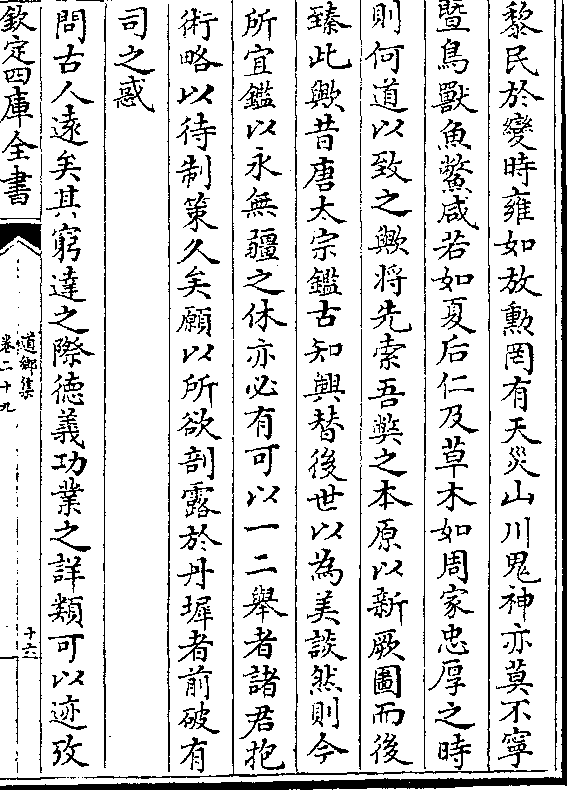 黎民於變時雍如放勲罔有天災山川鬼神亦莫不寧
暨鳥獸魚鱉咸若如夏后仁及草木如周家忠厚之時
則何道以致之歟将先索吾弊之本原以新厥圖而後
臻此歟昔唐太宗鑑古知興替後世以為美談然則今
所宜鑑以永無疆之休亦必有可以一二舉者諸君抱
術略以待制策久矣願以所欲剖露於丹墀者前破有
司之惑
問古人遠矣其窮達之際德義功業之詳類可以迹攷
欽定四庫全書
道鄉集
卷二十九
十六